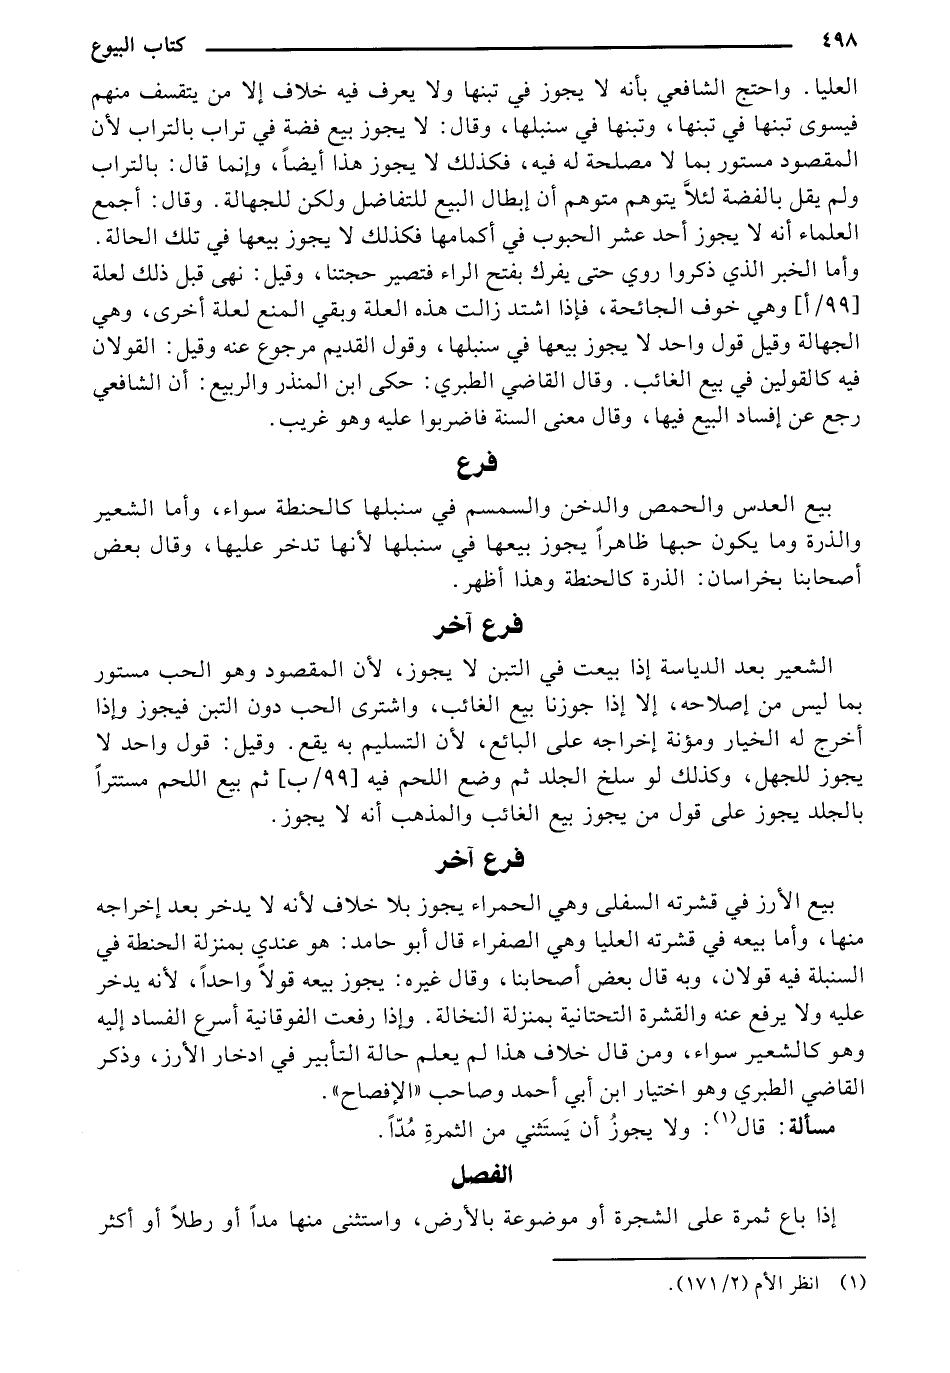 ٤٩٨ كتاب البيوع
العليا. واحتج الشافعي بأنه لا يجوز في تبنها ولا يعرف فيه خلاف إلا من يتقسف منهم
فيسوى تبنها في تبنها، وتبنها في سنبلها، وقال: لا يجوز بيع فضة في تراب بالتراب لأن
المقصود مستور بما لا مصلحة له فيه، فكذلك لا يجوز هذا أيضاً، وإنما قال: بالتراب
ولم يقل بالفضة لئلاَّ يتوهم متوهم أن إبطال البيع للتفاضل ولكن للجهالة. وقال: أجمع
العلماء أنه لا يجوز أحد عشر الحبوب في أكمامها فكذلك لا يجوز بيعها في تلك الحالة.
وأما الخبر الذي ذكروا روي حتى يفرك بفتح الراء فتصير حجتنا، وقيل: نهى قبل ذلك لعلة
[٩٩/ أ] وهي خوف الجائحة، فإذا اشتد زالت هذه العلة وبقي المنع لعلة أخرى، وهي
الجهالة وقيل قول واحد لا يجوز بيعها في سنبلها، وقول القديم مرجوع عنه وقيل: القولان
فيه كالقولين في بيع الغائب. وقال القاضي الطبري: حكى ابن المنذر والربيع: أن الشافعي
رجع عن إفساد البيع فيها، وقال معنى السنة فاضربوا عليه وهو غريب.
فرع
بيع العدس والحمص والدخن والسمسم في سنبلها كالحنطة سواء، وأما الشعير
والذرة وما يكون حبها ظاهراً يجوز بيعها في سنبلها لأنها تدخر عليها، وقال بعض
أصحابنا بخراسان: الذرة كالحنطة وهذا أظهر.
فرع آخر
الشعير بعد الدياسة إذا بيعت في التبن لا يجوز، لأن المقصود وهو الحب مستور
بما ليس من إصلاحه، إلا إذا جوزنا بيع الغائب، واشترى الحب دون التبن فيجوز وإذا
أخرج له الخيار ومؤنة إخراجه على البائع، لأن التسليم به يقع. وقيل: قول واحد لا
يجوز للجهل، وكذلك لو سلخ الجلد ثم وضع اللحم فيه [٩٩/ ب] ثم بيع اللحم مستتراً
بالجلد يجوز على قول من يجوز بيع الغائب والمذهب أنه لا يجوز.
فرع آخر
بيع الأرز في قشرته السفلى وهي الحمراء يجوز بلا خلاف لأنه لا يدخر بعد إخراجه
منها، وأما بيعه في قشرته العليا وهي الصفراء قال أبو حامد: هو عندي بمنزلة الحنطة في
السنبلة فيه قولان، وبه قال بعض أصحابنا، وقال غيره: يجوز بيعه قولاً واحداً، لأنه يدخر
عليه ولا يرفع عنه والقشرة التحتانية بمنزلة النخالة. وإذا رفعت الفوقانية أسرع الفساد إليه
وهو كالشعير سواء، ومن قال خلاف هذا لم يعلم حالة التأبير في ادخار الأرز، وذكر
القاضي الطبري وهو اختيار ابن أبي أحمد وصاحب «الإفصاح».
مسألة: قال(١): ولا يجوزُ أن يَستَثني من الثمرةِ مُدّاً.
الفصل
إذا باع ثمرة على الشجرة أو موضوعة بالأرض، واستثنى منها مداً أو رطلاً أو أكثر
(١) انظر الأم (٢/ ١٧١).